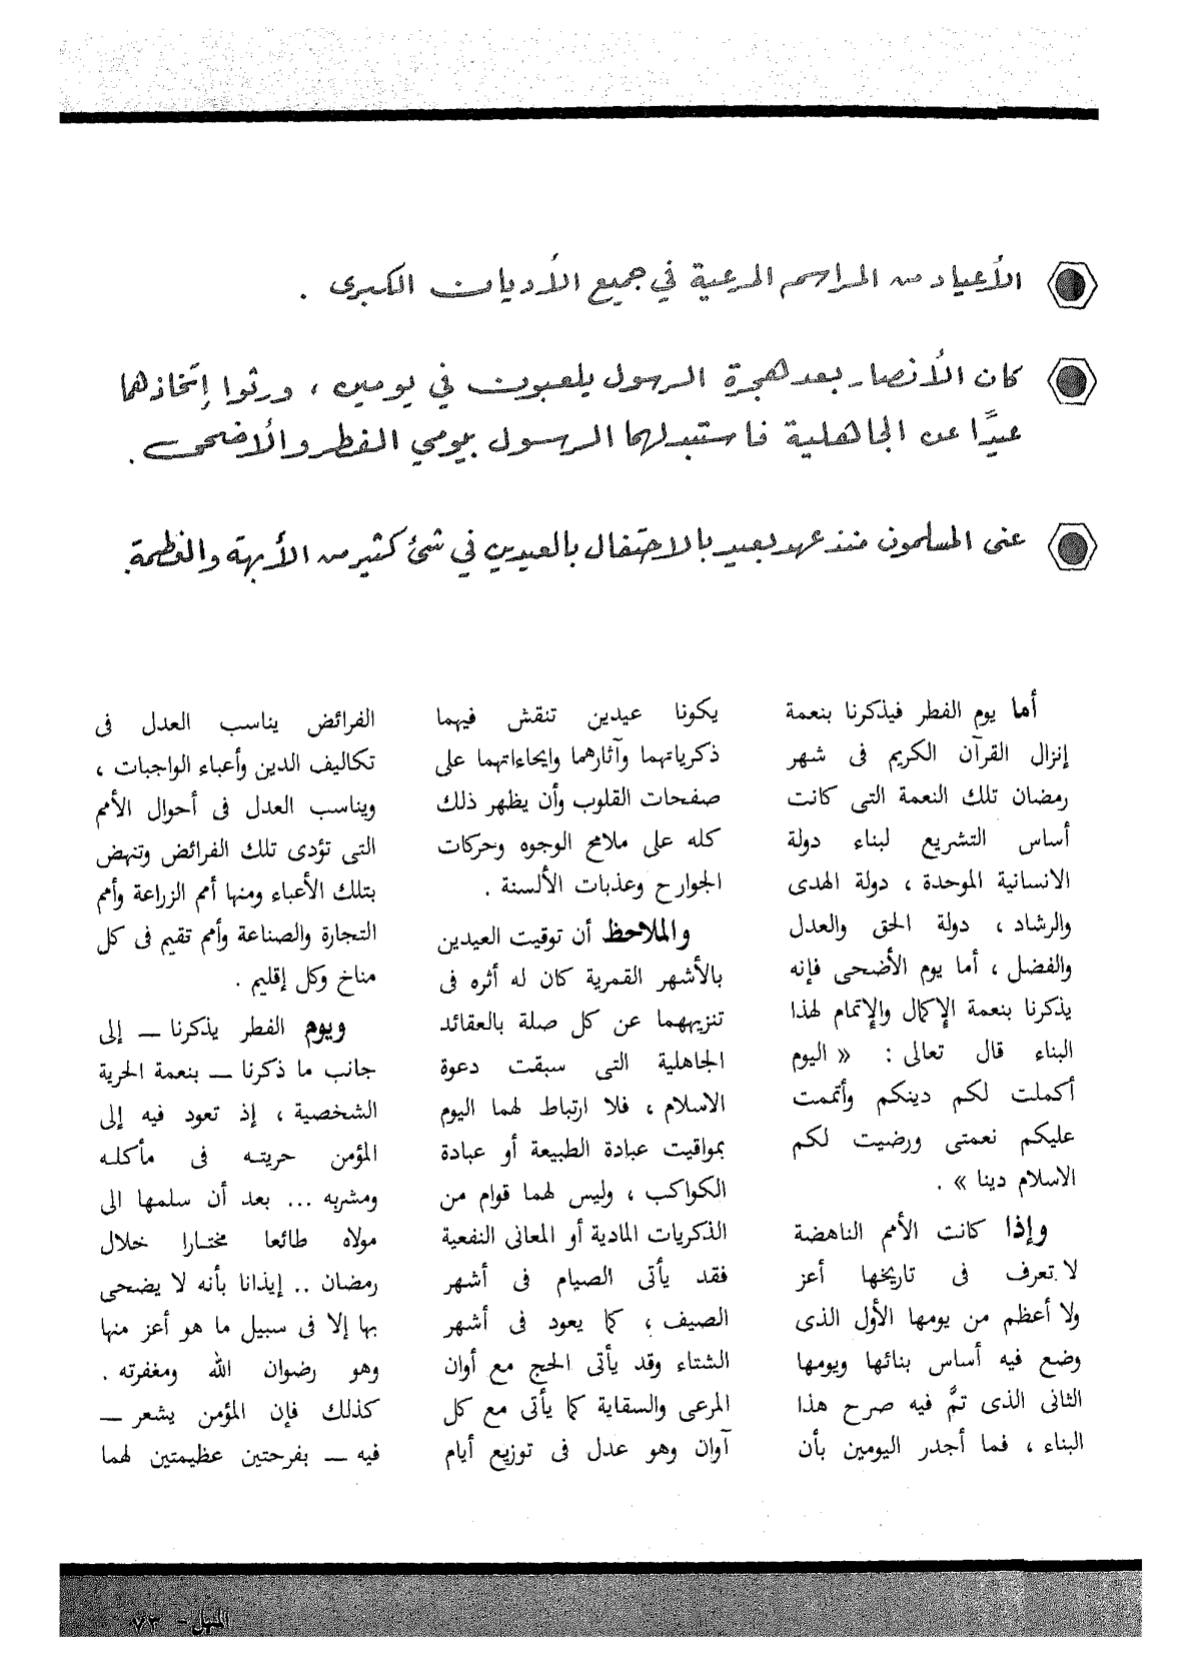 الأعياد من المراسم المرعية في جميع الأديان الكبرى .
كان الأنصار بعد هجرة الرسول يلعبون في يومين ، ورثوا إتخاذهما
عيدًا عن الجاهلية فاستبدلهما الرسول بيومي الفطر والأضحى .
عنى المسلمون منذ عهد بعيد بالاحتفال بالعيدين في شئ كثير من الأبهة والفخامة.
أما يوم الفطر فيذكرنا بنعمة
إنزال القرآن الكريم فى شهر
رمضان تلك النعمة التى كانت
أساس التشريع لبناء دولة
الانسانية الموحدة ، دولة الهدى
والرشاد ، دولة الحق والعدل
والفضل ، أما يوم الأضحى فإنه
يذكرنا بنعمة الإكمال والإتمام لهذا
البناء قال تعالى : « اليوم
أكملت لكم دينكم وأتممت
عليكم نعمتى ورضيت لكم
الاسلام دينا » .
وإذا كانت الأمم الناهضة
لا تعرف فى تاريخها أعز
ولا أعظم من يومها الأول الذى
وضع فيه أساس بنائها ويومها
الثانى الذى تمَّ فيه صرح هذا
البناء ، فما أجدر اليومين بأن
يكونا عيدين تنقش فيهما
ذكرياتهما وآثارهما وإيحاءاتهما على
صفحات القلوب وأن يظهر ذلك
كله على ملامح الوجوه وحركات
الجوارح وعذبات الألسنة .
والملاحظ أن توقيت العيدين
بالأشهر القمرية كان له أثره فى
تنزيههما عن كل صلة بالعقائد
الجاهلية التى سبقت دعوة
الاسلام ، فلا ارتباط لهما اليوم
بمواقيت عبادة الطبيعة أو عبادة
الكواكب ، وليس لهما قوام من
الذكريات المادية أو المعانى النفعية
فقد يأتى الصيام فى أشهر
الصيف ، كما يعود فى أشهر
الشتاء وقد يأتى الحج مع أوان
المرعى والسقاية كما يأتى مع كل
آوان وهو عدل فى توزيع أيام
الفرائض يناسب العدل فى
تكاليف الدين وأعباء الواجبات ،
ويناسب العدل فى أحوال الأمم
التى تؤدى تلك الفرائض وتنهض
بتلك الأعباء ومنها أمم الزراعة وأمم
التجارة والصناعة وأمم تقيم فى كل
مناخ وكل إقليم .
ويوم الفطر يذكرنا — إلى
جانب ما ذكرنا — بنعمة الحرية
الشخصية ، إذ تعود فيه إلى
المؤمن حريته فى مأكله
ومشربه ... بعد أن سلمها الى
مولاه طائعا مختارا خلال
رمضان .. إيذانا بأنه لا يضحى
بها إلا فى سبيل ما هو أعز منها
وهو رضوان الله ومغفرته .
كذلك فإن المؤمن يشعر —
فيه — بفرحتين عظيمتين لهما
المنهل - ٧٣